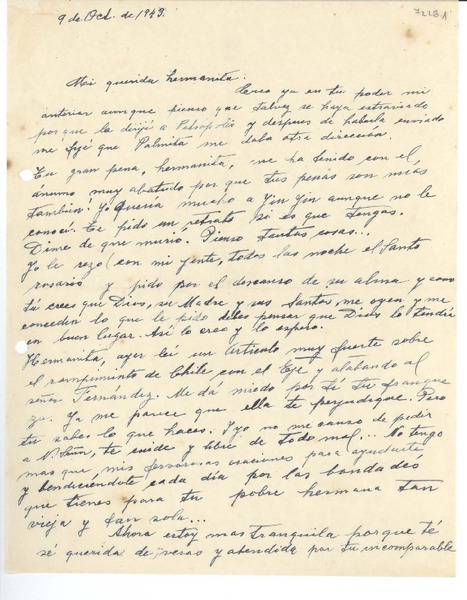 9 de Oct. de 1943.
7228 A
Mi querida hermanita:
Creo ya en tu poder mi
anterior aunque pienso que talvez se haya extraviado
porque la dirijí a Petrópolis y despues de haberla enviado
me fijé que Palmita me daba otra dirección.
Tu gran pena, hermanita, me ha tenido con el
ánimo muy abatido por que tus penas son mias
tambien! Yo quería mucho a Yin Yin aunque no le
conocí. Te pido un retrato si es que tengas.
Dime de que murió. Pienso tantas cosas...
Yo le rezo (con mi gente, todas las noche el Santo
rosario y pido por el descanso de su alma y como
tú crees que Dios, su Madre y sus Santos, me oyen y me
conceden lo que le pido debes pensar que Dios lo tendrá
en buen lugar. Así lo creo y lo espero.
Hermanita, ayer leí un artículo muy fuerte sobre
el rompimiento de Chile con el Eje y alabando al
señor Fernández. Me dá miedo por tí tu franque
za. Ya me parece que ella te perjudique. Pero
tu sabes lo que haces. Y yo no me canso de pedir
a N. Señor, te cuide y libre de todo mal... No tengo
mas que, mis fervorosas oraciones para ayudarte
y bendiciendote cada día por las bondades
que tienes para tu pobre hermana tan
vieja y tan sola...
Ahora estoy mas tranquila porque té
sé querida de veras y atendida por tu incomparable